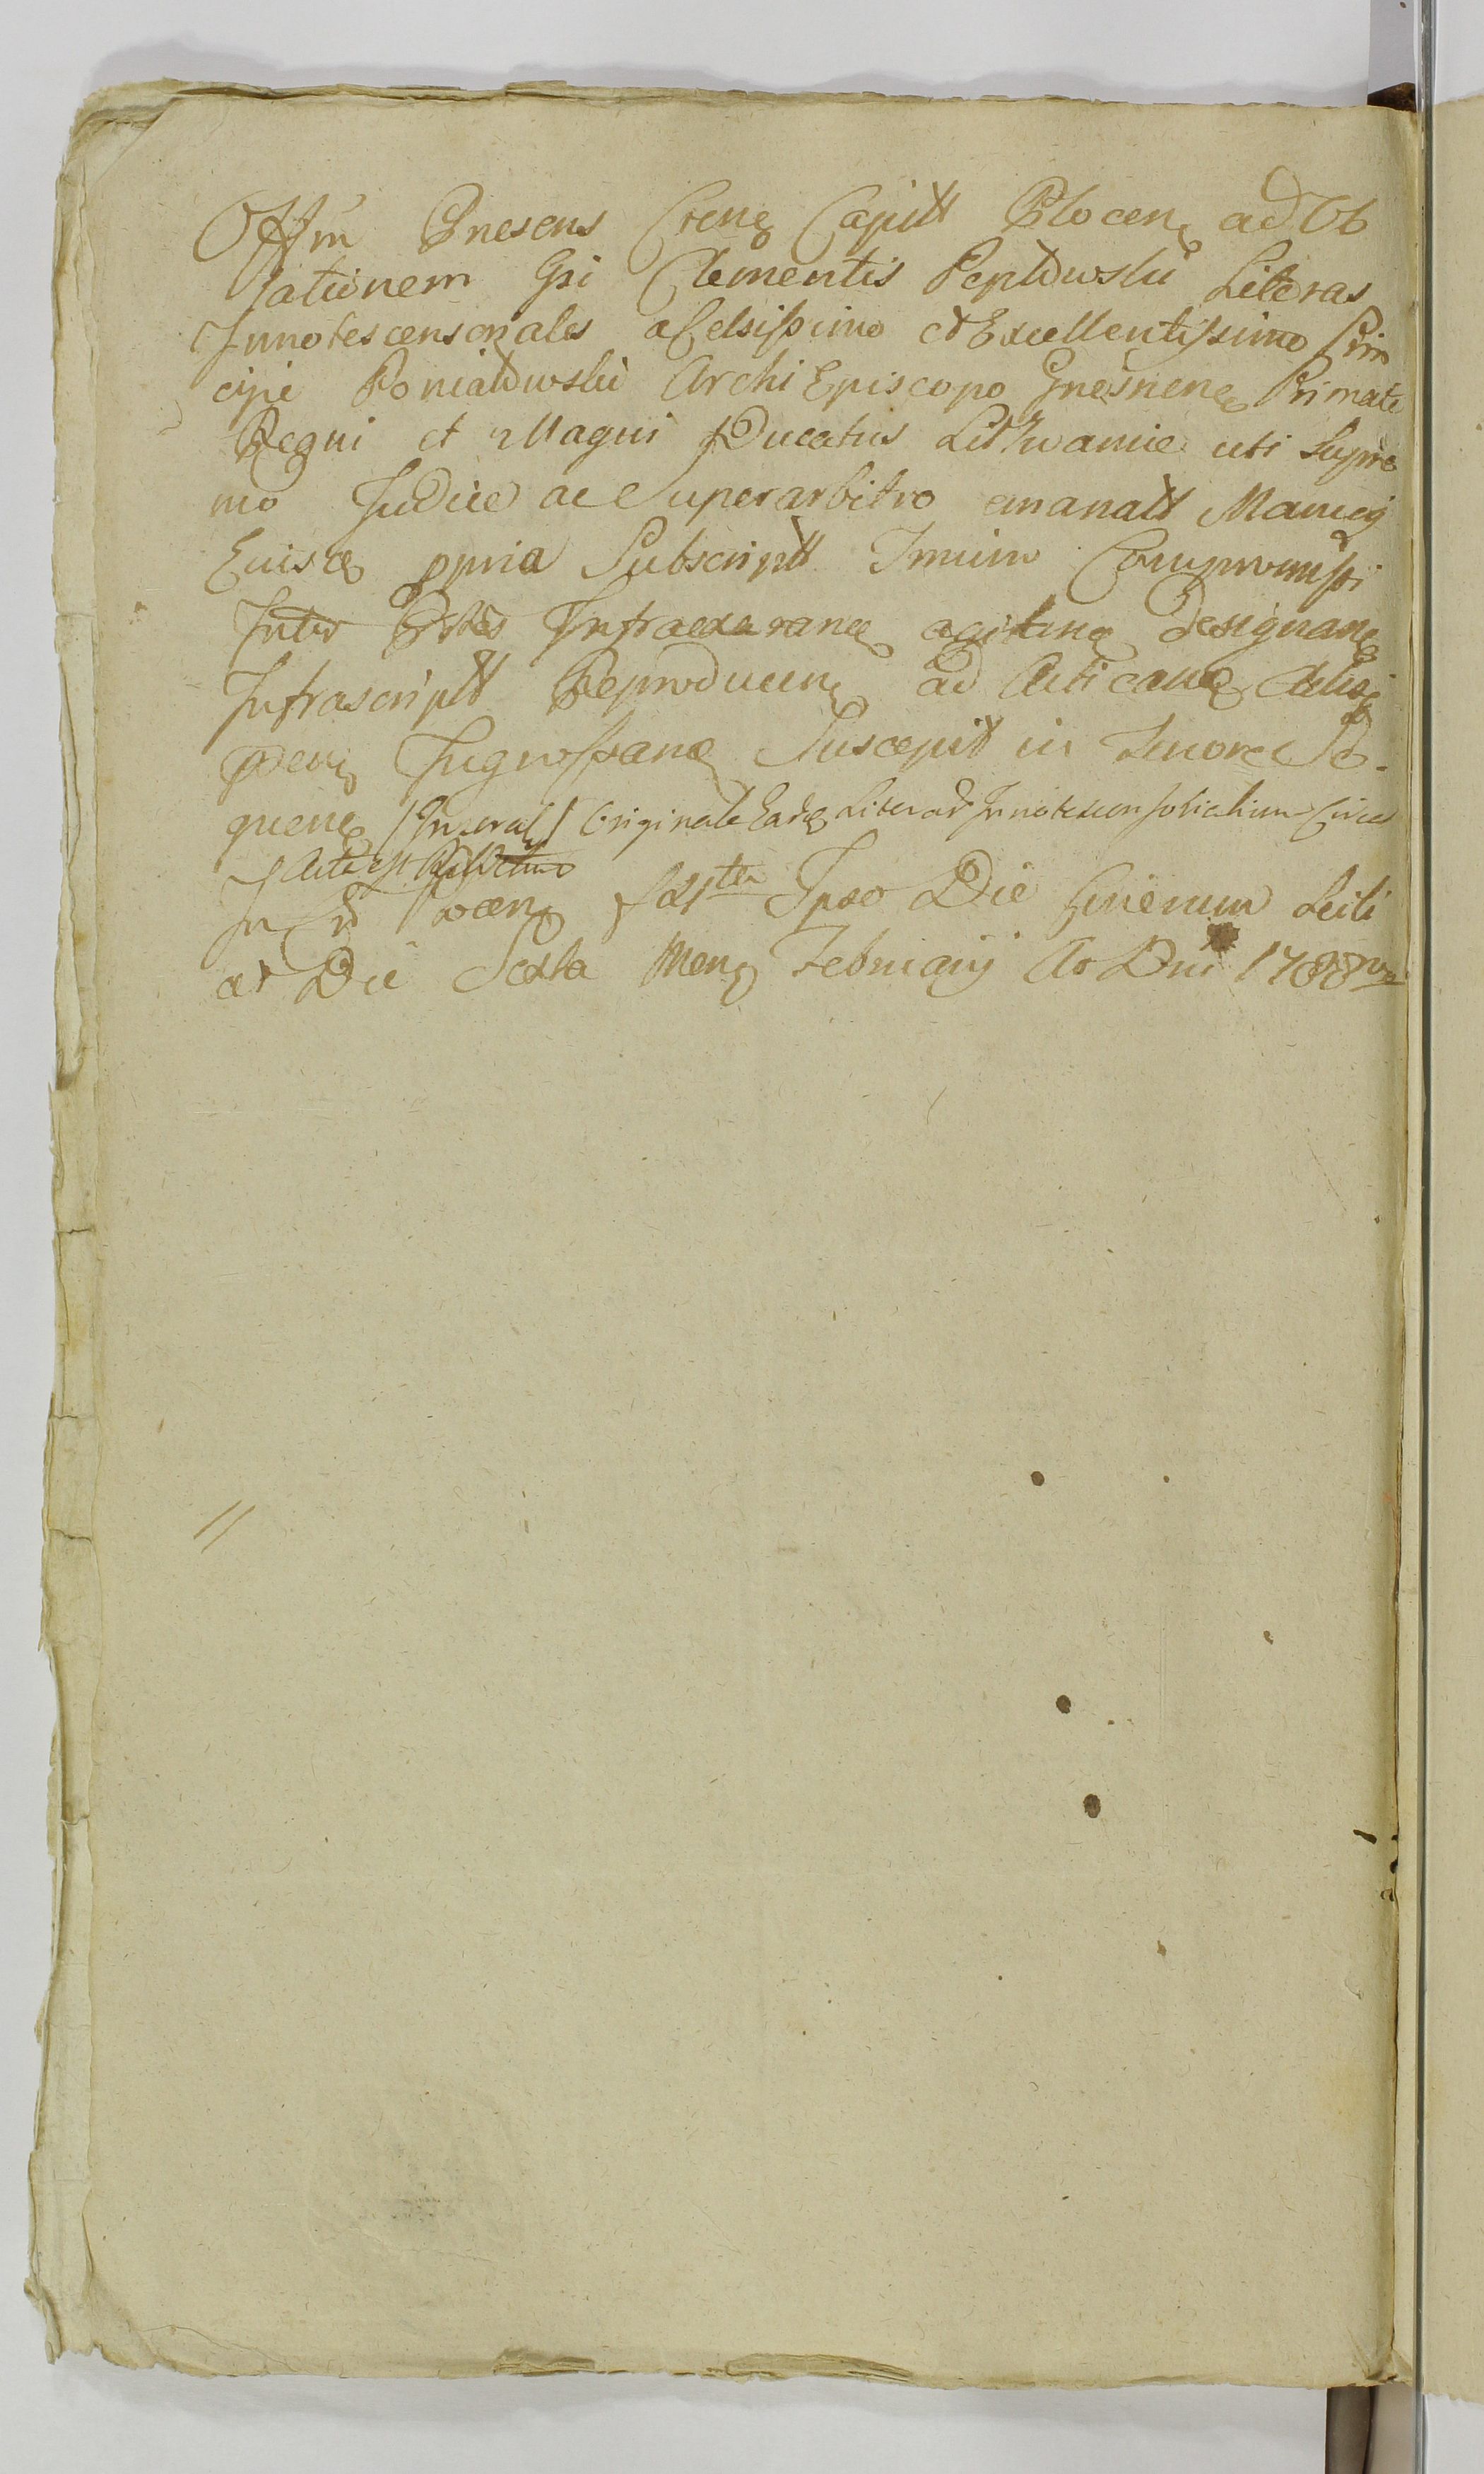 Offm Presens Crene Capitt Plocen ad Ob
lationem Gsi Clementis Peptowski Literas
Innotescensoriales a Celsissimo et Excellentissimo Prin
cipe Poniatowski Archi Episcopo Gnesnen Primate
Regni et Magni Ducatus Lithwanie uti Supre
mo Judice ac Superarbitro emanatt Manuq
Eiusde ppria Subscriptt Compromissi
Inter Ptes Infraexaran agitan designan
Infrascriptt Reproducen ad Acticand
den Ingrossand Suscepit in Tenore Se
quen Originale Literar Innotescensorialium Circa
Acta est
In Ipso Die Cinerum
ar Die Sexta Mens Februarij Ao Dni 1788